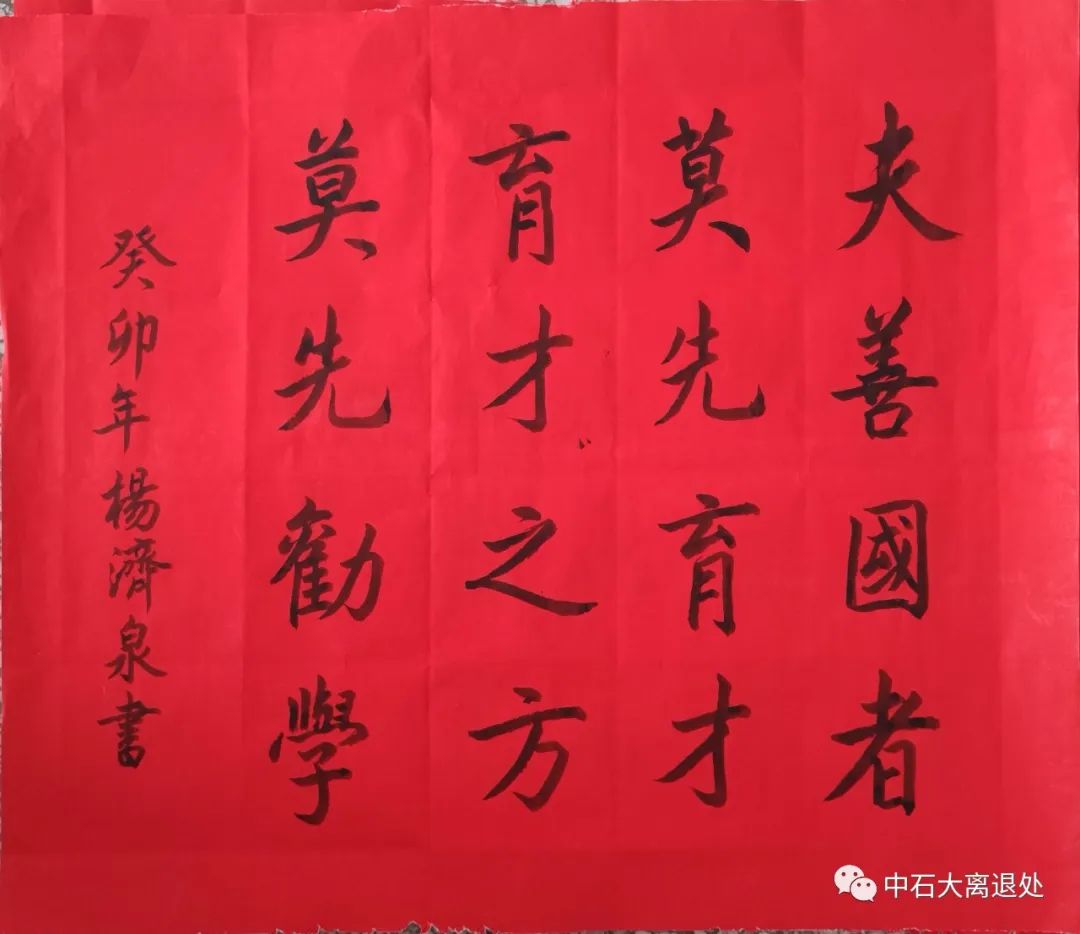 夫善國者
莫先育才
育才之方
莫先勸學
癸卯年楊濟泉書
中石大离退处